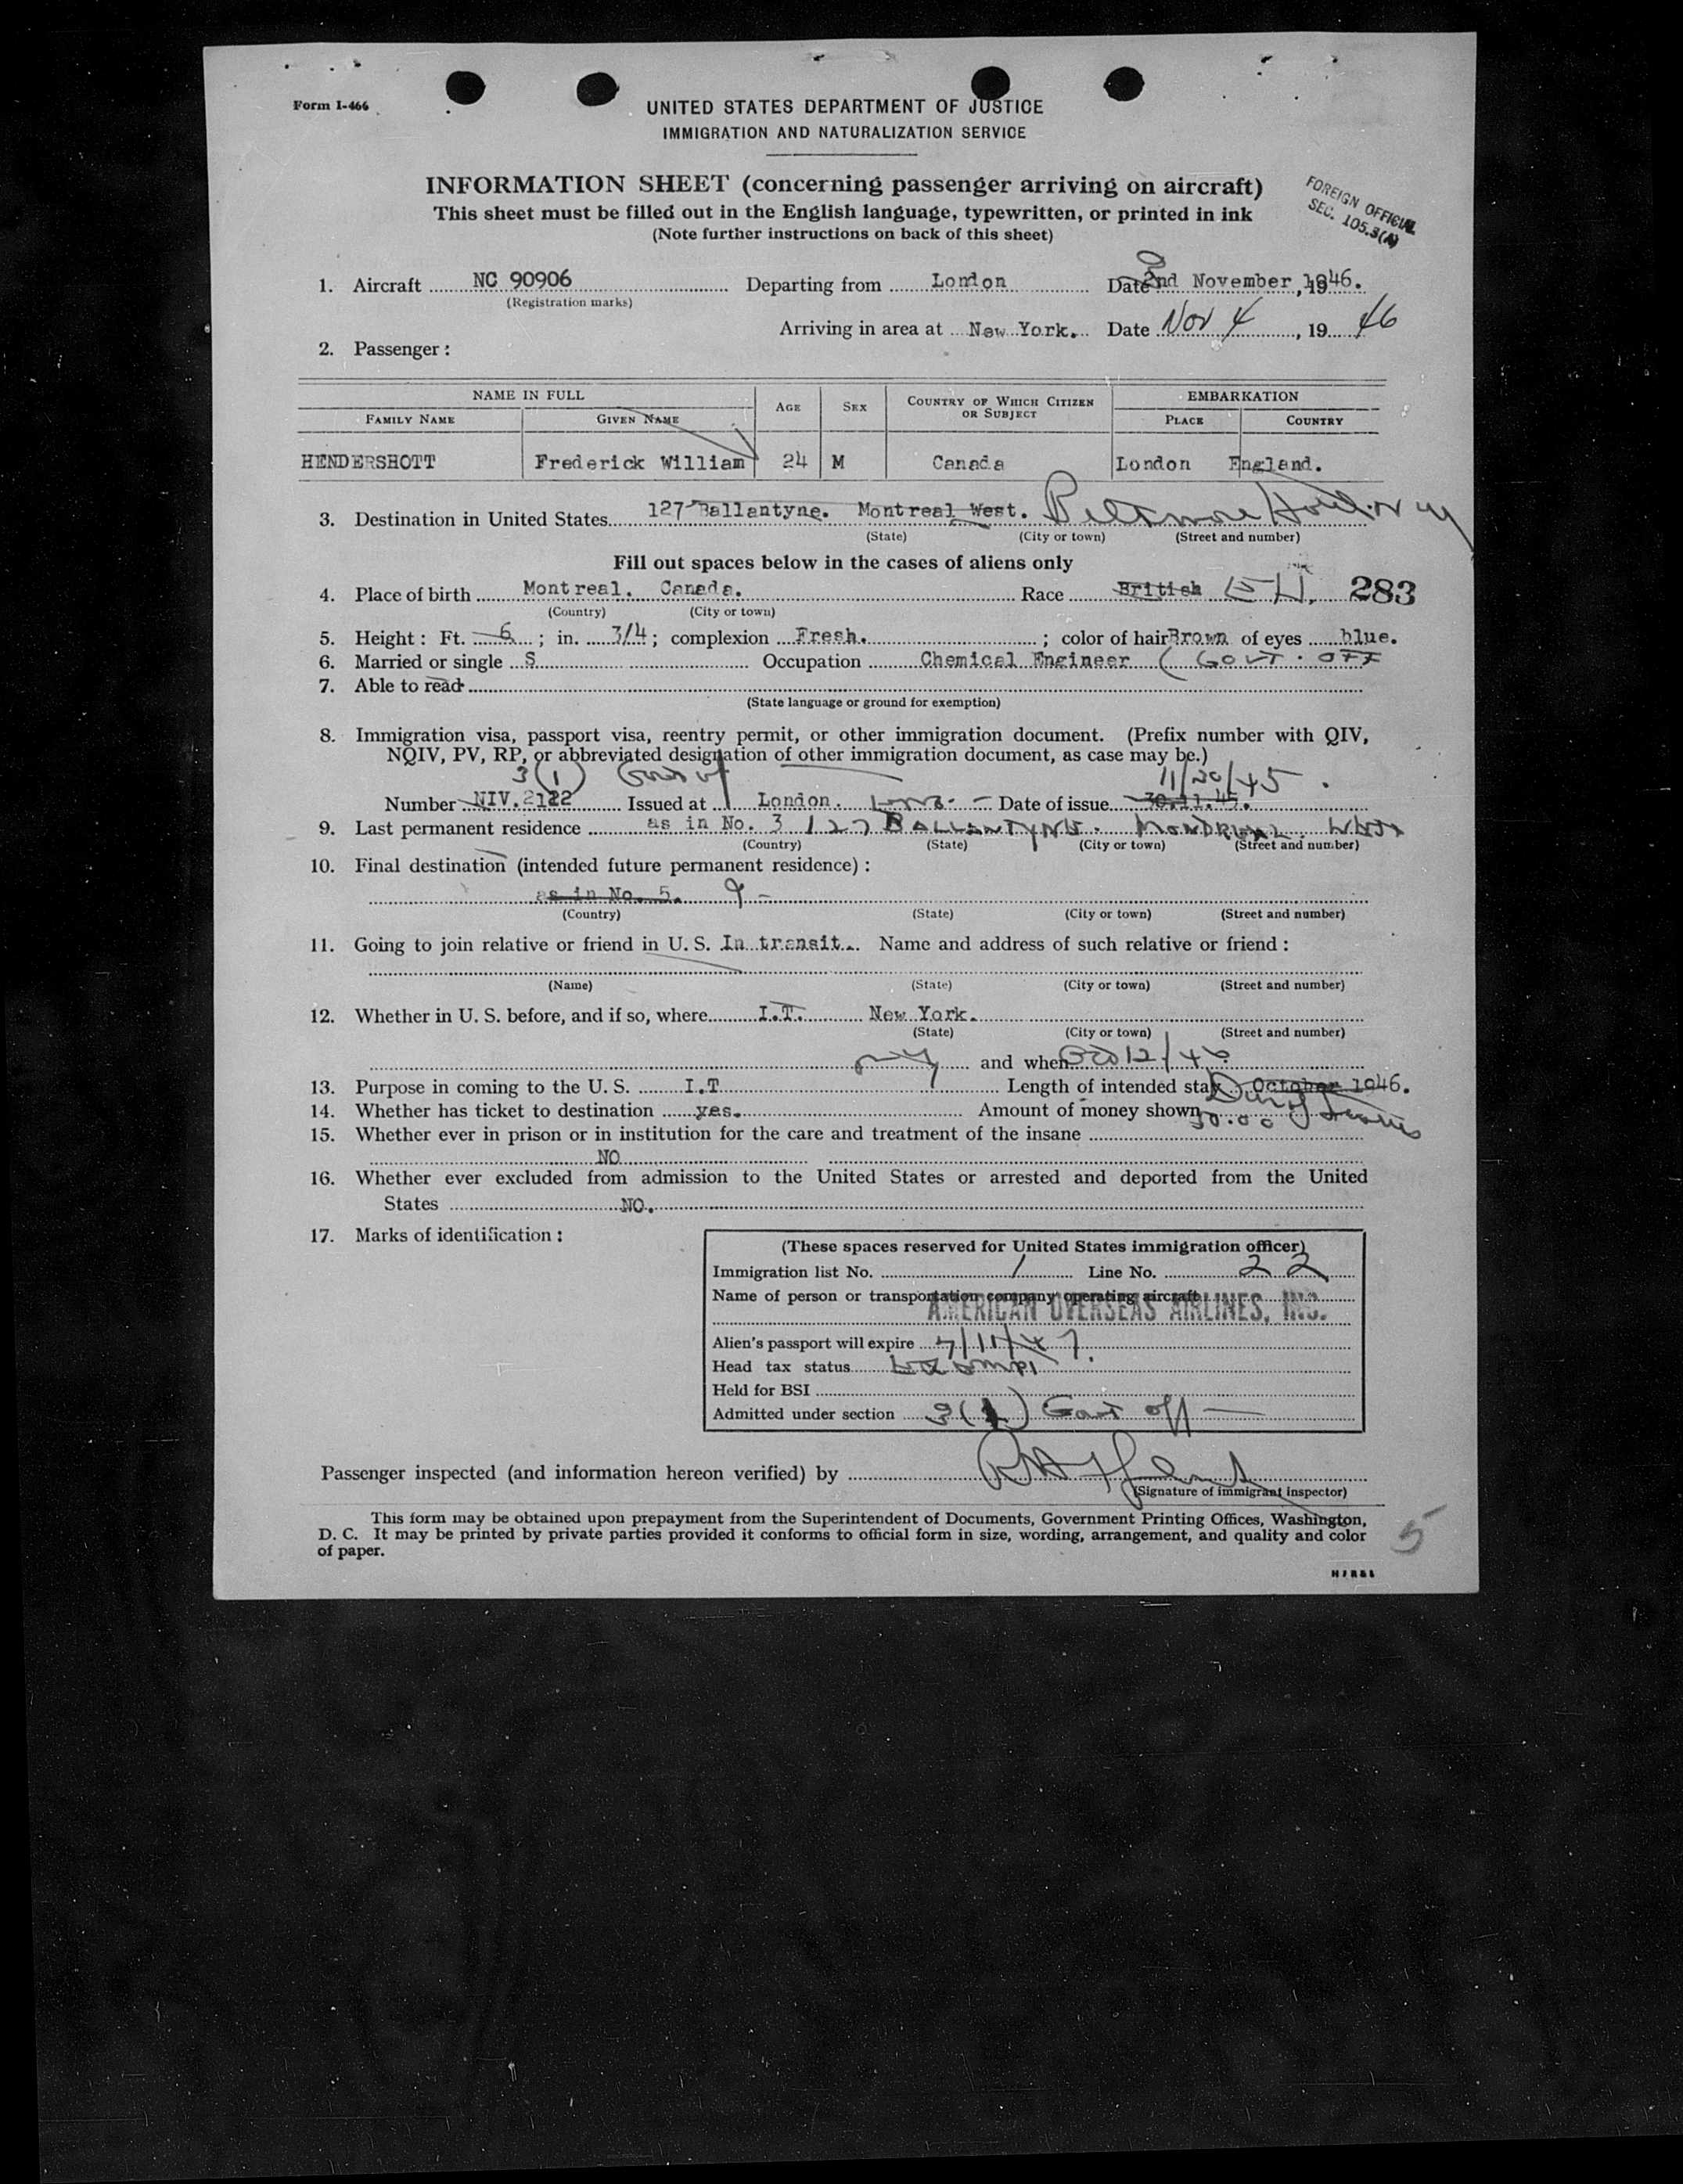 Form I-466
UNITED STATES DEPARTMENT OF JUSTICE
IMMIGRATION AND NATURALIZATION SERVICE
INFORMATION SHEET (concerning passenger arriving on aircraft)
This sheet must be filled out in the English language, typewritten, or printed in ink
(Note further instructions on back of this sheet)
FOREIGN OFFICIAL
SEC. 105.3(A)
1. Aircraft NC 90906 Departing from London Date 2nd November, 1946.
(Registration marks)
Arriving in area at New York. Date Nov 4, 19 46
2. Passenger:
NAME IN FULL AGE SEX COUNTRY OF WHICH CITIZEN OR SUBJECT EMBARKATION
FAMILY NAME GIVEN NAME PLACE COUNTRY
HENDERSHOTT Frederick William 24 M Canada London England.
3. Destination in United States 127 Ballantyne. Montreal West. Biltmore Hotel N Y
(State) (City or town) (Street and number)
Fill out spaces below in the cases of aliens only
4. Place of birth Montreal. Canada. Race British 283
(Country) (City or town)
5. Height: Ft. 6; in. 3/4; complexion Fresh.; color of hair Brown of eyes blue.
6. Married or single S Occupation Chemical Engineer (GOVT. OFF
7. Able to read
(State language or ground for exemption)
8. Immigration visa, passport visa, reentry permit, or other immigration document. (Prefix number with QIV,
NQIV, PV, RP, or abbreviated designation of other immigration document, as case may be.)
3(1) Govt off 11/30/45.
Number NIV. 2122 Issued at London. Date of issue 30.11.45.
9. Last permanent residence as in No. 3 127 BALLANTYNE. MONTREAL. WEST
(Country) (State) (City or town) (Street and number)
10. Final destination (intended future permanent residence):
as in No. 5. 9 -
(Country) (State) (City or town) (Street and number)
11. Going to join relative or friend in U. S. In transit. Name and address of such relative or friend:
(Name) (State) (City or town) (Street and number)
12. Whether in U. S. before, and if so, where I.T. New York.
(State) (City or town) (Street and number)
and when
13. Purpose in coming to the U. S. I.T Length of intended stay October 1946.
14. Whether has ticket to destination yes. Amount of money shown 50.00
15. Whether ever in prison or in institution for the care and treatment of the insane
NO
16. Whether ever excluded from admission to the United States or arrested and deported from the United
States NO.
17. Marks of identification:
(These spaces reserved for United States immigration officer)
Immigration list No. 1 Line No. 22
Name of person or transportation company operating aircraft
AMERICAN OVERSEAS AIRLINES, INC.
Alien's passport will expire 7/11/47.
Head tax status
Held for BSI
Admitted under section 3(1) Govt off —
Passenger inspected (and information hereon verified) by
(Signature of immigrant inspector)
This form may be obtained upon prepayment from the Superintendent of Documents, Government Printing Offices, Washington,
D. C. It may be printed by private parties provided it conforms to official form in size, wording, arrangement, and quality and color
of paper.
5